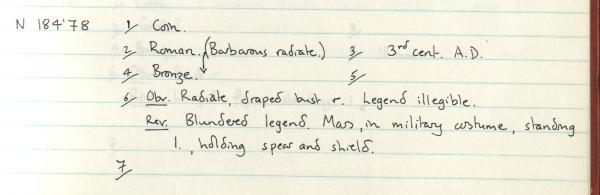 N 184'78 1/ Coin.
2/ Roman. (Barbarous radiate.) 3/ 3rd cent. A.D.
4/ Bronze. 5/
6/ Obv. Radiate, draped bust r. Legend illegible.
Rev. Blundered legend. Mars, in military costume, standing
l., holding spear and shield.
7/